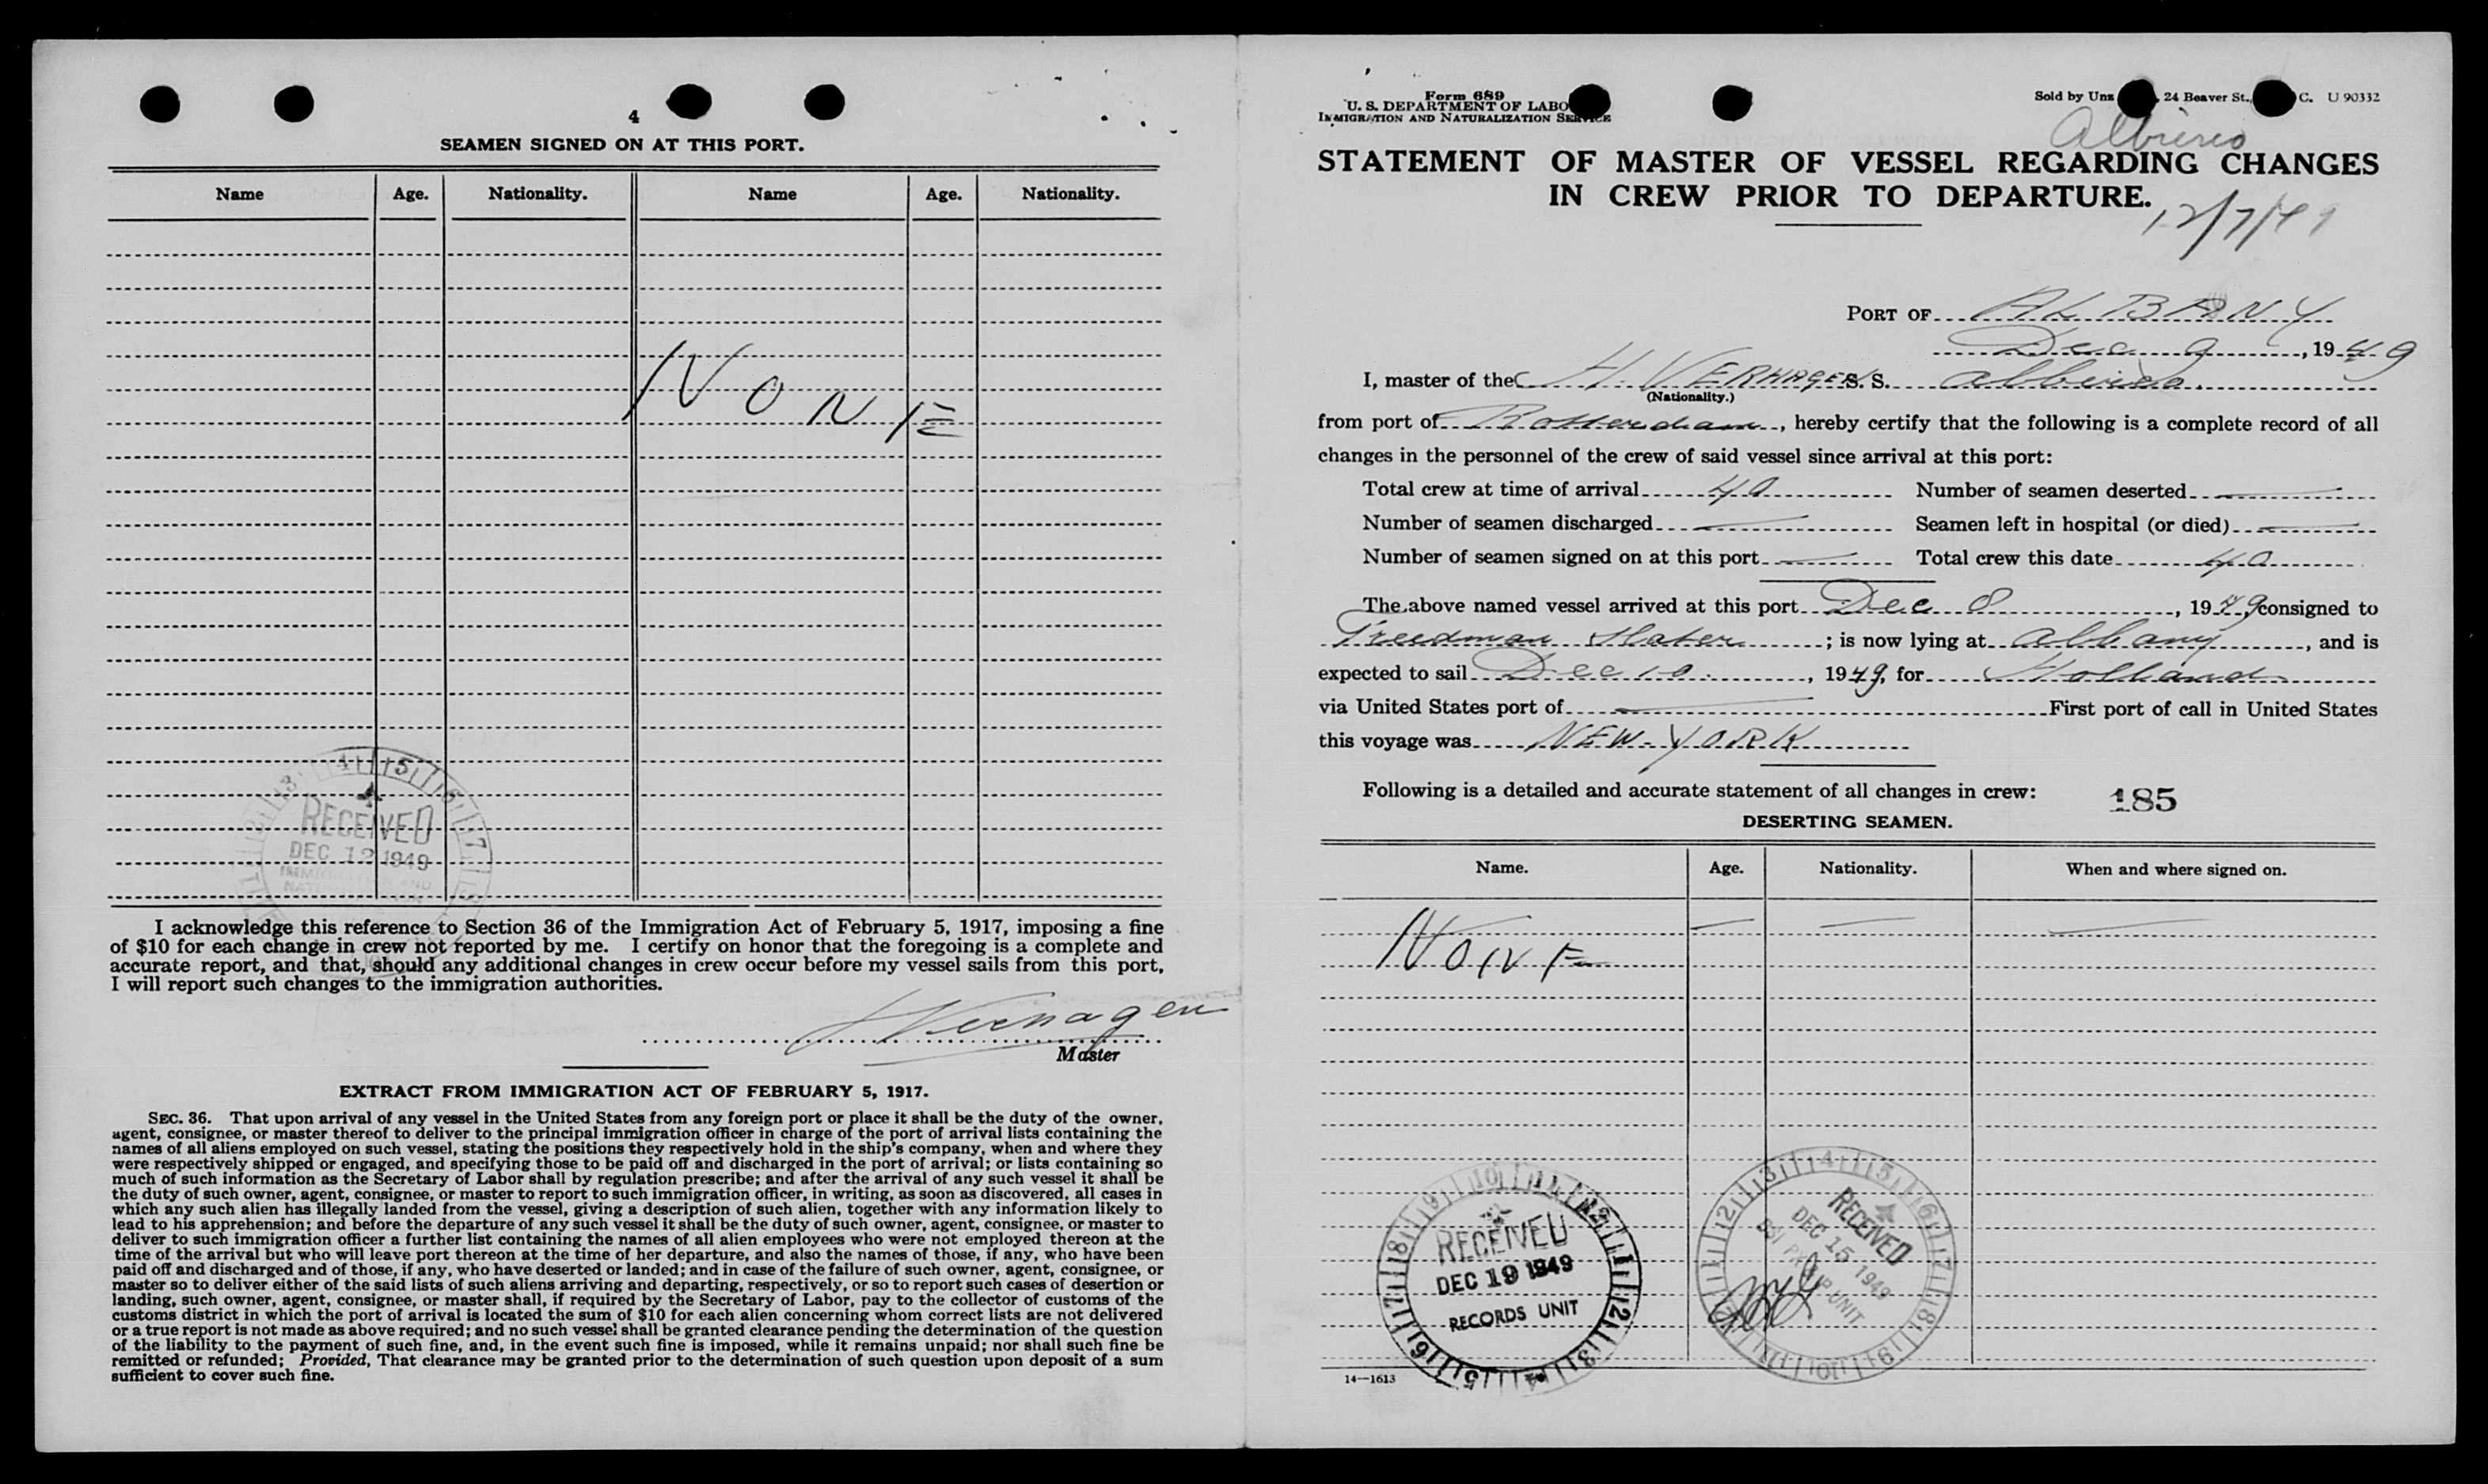 4
SEAMEN SIGNED ON AT THIS PORT.
Name Age. Nationality. Name Age. Nationality.
NONE
RECEIVED
DEC 12 1949
I acknowledge this reference to Section 36 of the Immigration Act of February 5, 1917, imposing a fine
of $10 for each change in crew not reported by me. I certify on honor that the foregoing is a complete and
accurate report, and that, should any additional changes in crew occur before my vessel sails from this port,
I will report such changes to the immigration authorities.
HVerhagen
Master
EXTRACT FROM IMMIGRATION ACT OF FEBRUARY 5, 1917.
SEC. 36. That upon arrival of any vessel in the United States from any foreign port or place it shall be the duty of the owner,
agent, consignee, or master thereof to deliver to the principal immigration officer in charge of the port of arrival lists containing the
names of all aliens employed on such vessel, stating the positions they respectively hold in the ship's company, when and where they
were respectively shipped or engaged, and specifying those to be paid off and discharged in the port of arrival; or lists containing so
much of such information as the Secretary of Labor shall by regulation prescribe; and after the arrival of any such vessel it shall be
the duty of such owner, agent, consignee, or master to report to such immigration officer, in writing, as soon as discovered, all cases in
which any such alien has illegally landed from the vessel, giving a description of such alien, together with any information likely to
lead to his apprehension; and before the departure of any such vessel it shall be the duty of such owner, agent, consignee, or master to
deliver to such immigration officer a further list containing the names of all alien employees who were not employed thereon at the
time of the arrival but who will leave port thereon at the time of her departure, and also the names of those, if any, who have been
paid off and discharged and of those, if any, who have deserted or landed; and in case of the failure of such owner, agent, consignee, or
master so to deliver either of the said lists of such aliens arriving and departing, respectively, or so to report such cases of desertion or
landing, such owner, agent, consignee, or master shall, if required by the Secretary of Labor, pay to the collector of customs of the
customs district in which the port of arrival is located the sum of $10 for each alien concerning whom correct lists are not delivered
or a true report is not made as above required; and no such vessel shall be granted clearance pending the determination of the question
of the liability to the payment of such fine, and, in the event such fine is imposed, while it remains unpaid; nor shall such fine be
remitted or refunded; Provided, That clearance may be granted prior to the determination of such question upon deposit of a sum
sufficient to cover such fine.
Form 689
U. S. DEPARTMENT OF LABO
IMMIGRATION AND NATURALIZATION SERVICE
Sold by Unz 24 Beaver St., C. U 90332
STATEMENT OF MASTER OF VESSEL REGARDING CHANGES
IN CREW PRIOR TO DEPARTURE.
12/7/49
PORT OF ALBANY
Dec 9, 1949
I, master of the H. VERHAGEN S. S.
(Nationality.)
from port of Rotterdam, hereby certify that the following is a complete record of all
changes in the personnel of the crew of said vessel since arrival at this port:
Total crew at time of arrival 40 Number of seamen deserted —
Number of seamen discharged — Seamen left in hospital (or died) —
Number of seamen signed on at this port — Total crew this date 40
The above named vessel arrived at this port Dec 8, 1949, consigned to
Freedman Slater; is now lying at Albany, and is
expected to sail Dec 10, 1949, for Holland
via United States port of — First port of call in United States
this voyage was NEW-YORK
Following is a detailed and accurate statement of all changes in crew: 185
DESERTING SEAMEN.
Name. Age. Nationality. When and where signed on.
— — —
NONE
RECEIVED
DEC 19 1949
RECORDS UNIT
RECEIVED
DEC 15 1949
UNIT
14—1613